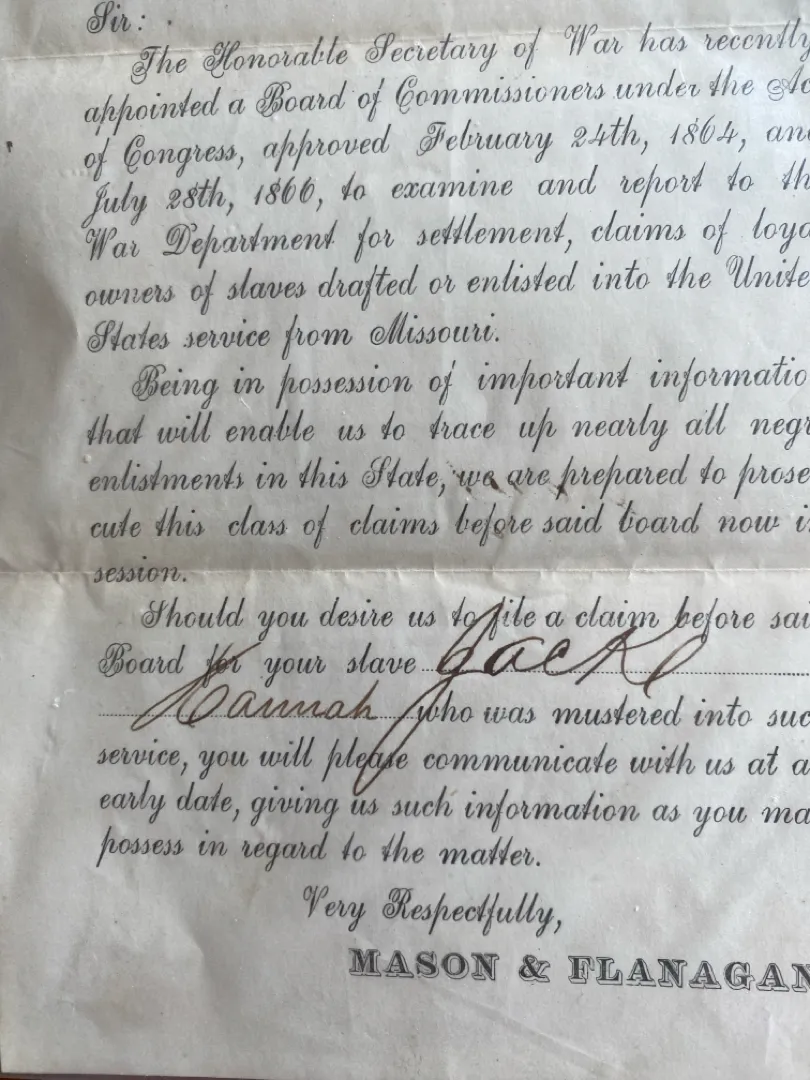 Sir:
The Honorable Secretary of War has recently
appointed a Board of Commissioners under the Ac
of Congress, approved February 24th, 1864, and
July 28th, 1866, to examine and report to th
War Department for settlement, claims of loya
owners of slaves drafted or enlisted into the Unite
States service from Missouri.
Being in possession of important informatio
that will enable us to trace up nearly all negr
enlistments in this State, we are prepared to prose-
cute this class of claims before said board now i
session.
Should you desire us to file a claim before sai
Board for your slave Jack
Hannah who was mustered into suc
service, you will please communicate with us at a
early date, giving us such information as you ma
possess in regard to the matter.
Very Respectfully,
MASON & FLANAGAN